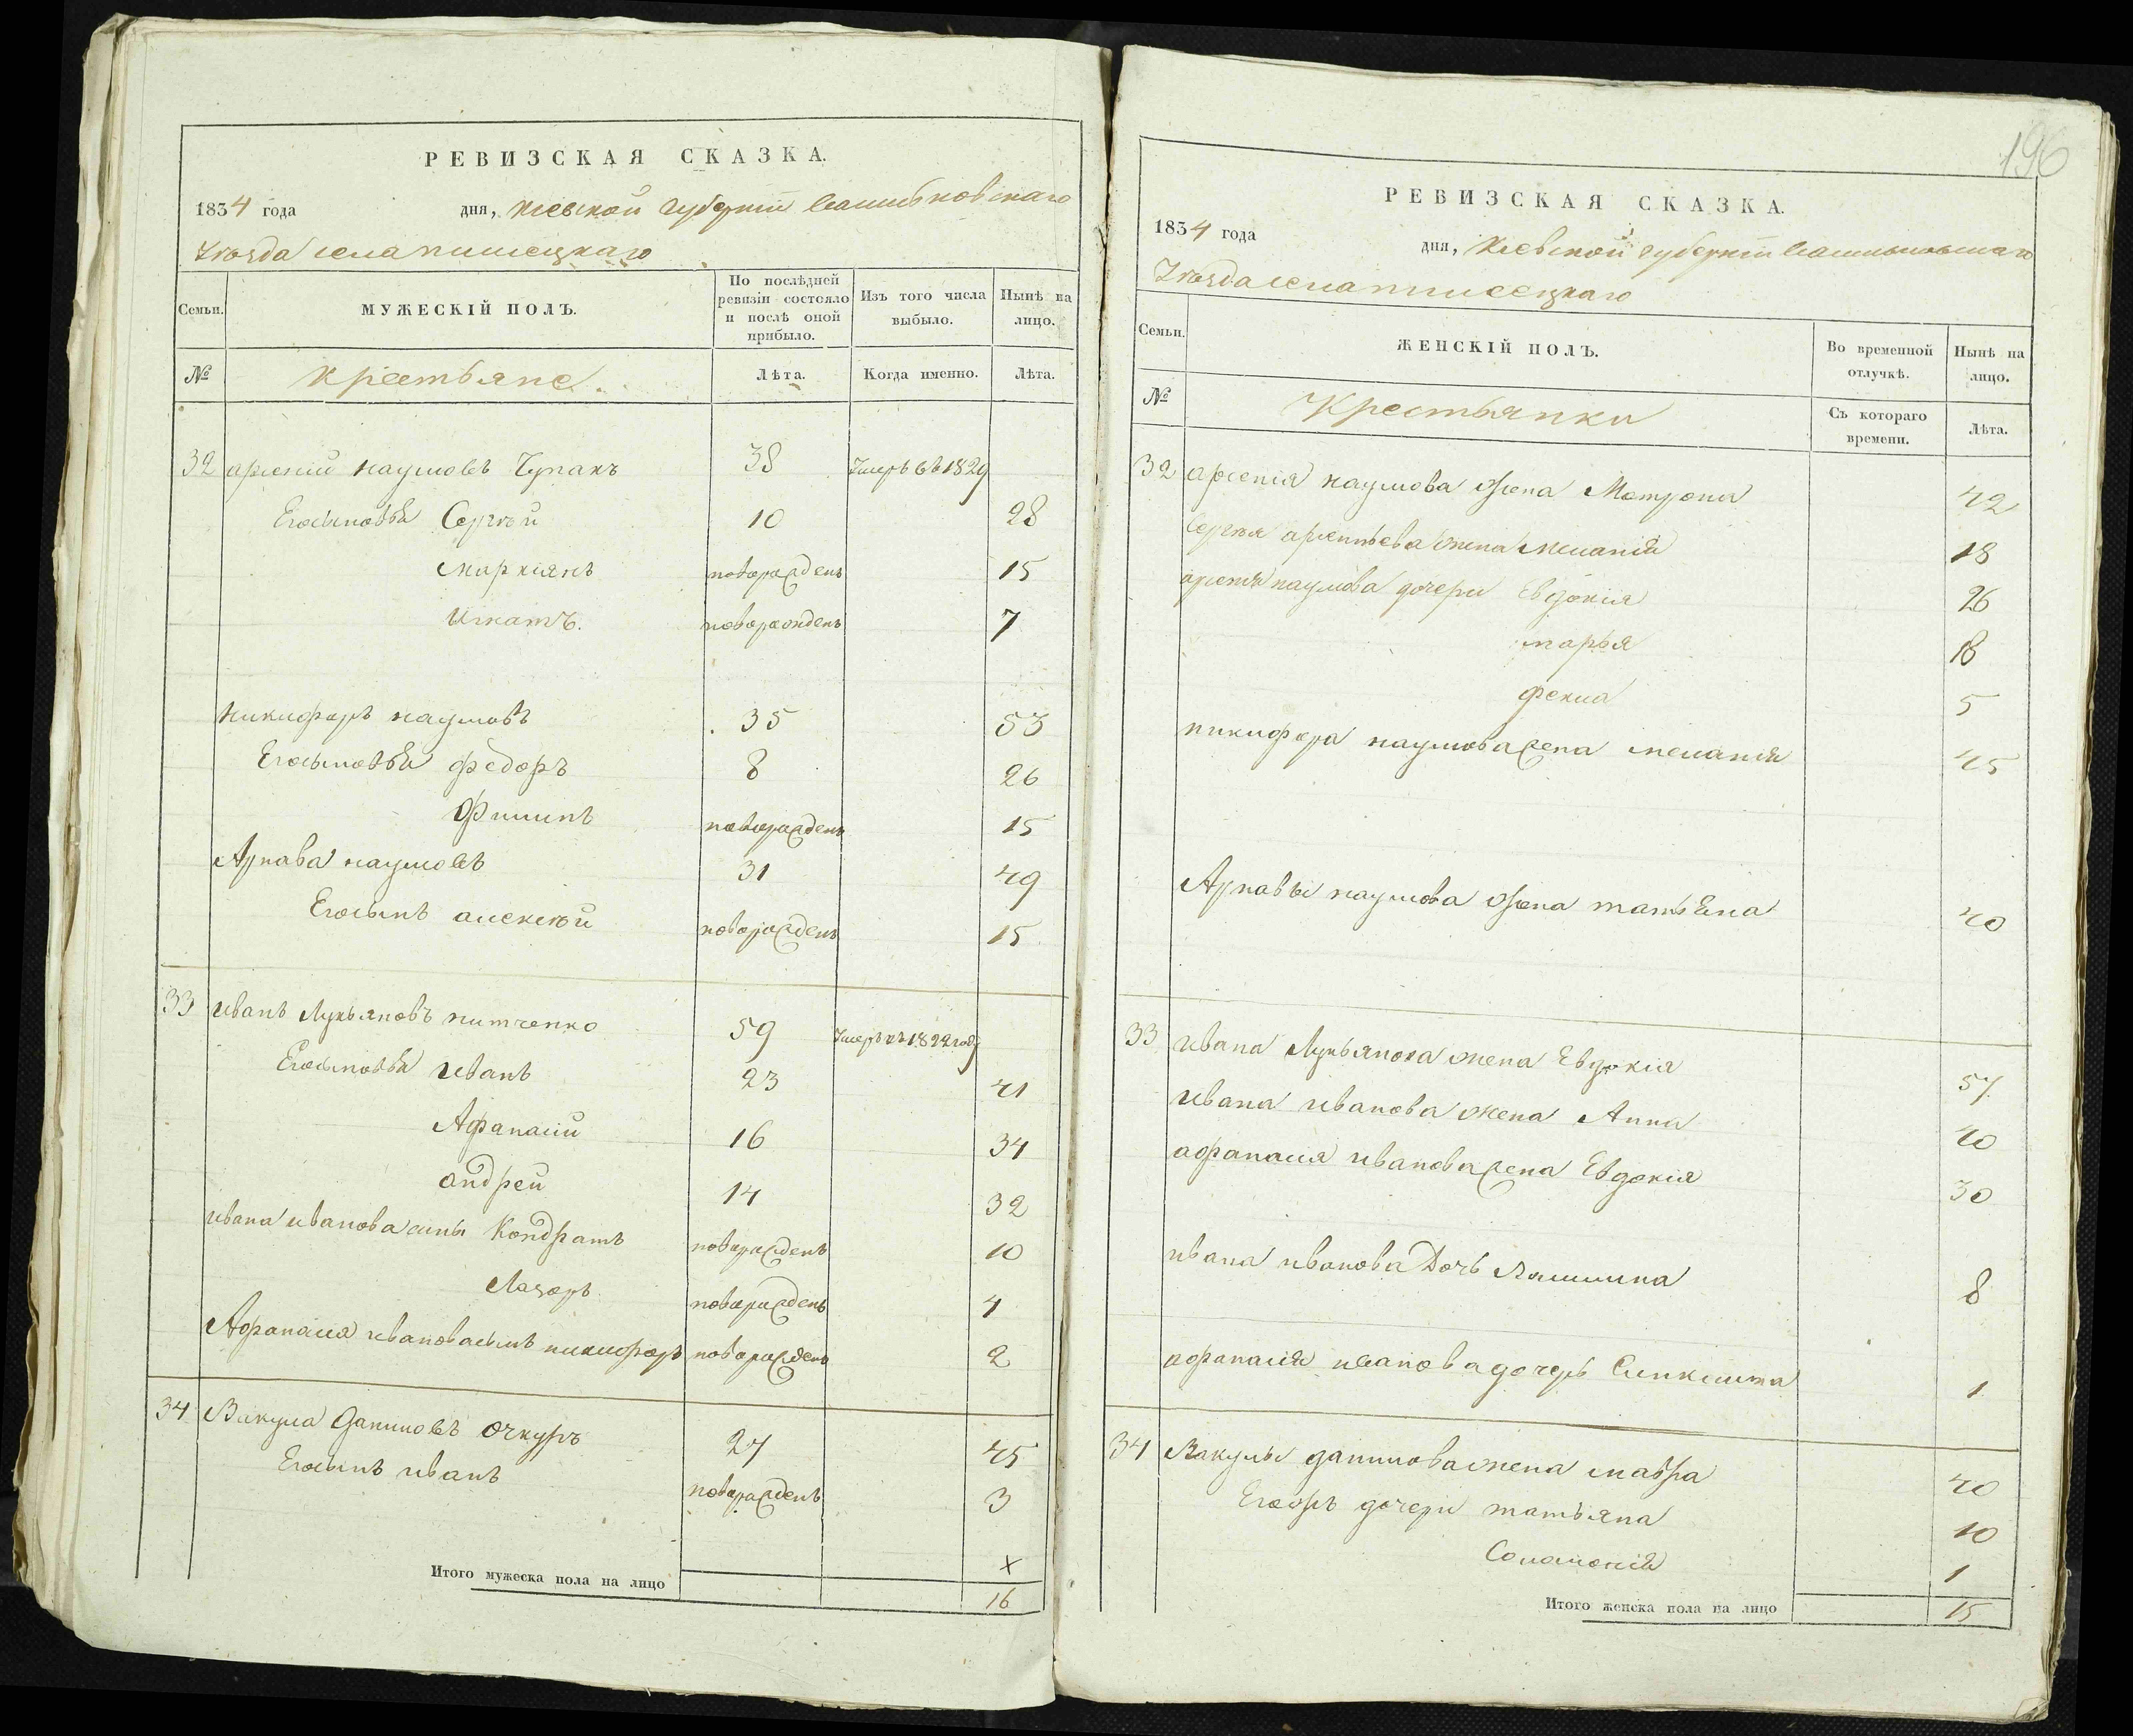 РЕВИЗСКАЯ СКАЗКА.
1834 года дня, Кіевской Губерніи Сквирскаго
Уѣзда села
Семьи.
МУЖЕСКІЙ ПОЛЪ.
По послѣдней ревизіи состояло и послѣ оной прибыло.
Изъ того числа выбыло.
Нынѣ на лицо.
№ Крестьяне. Лѣта. Когда именно. Лѣта.
32 Арсений Наумовъ Чупакъ 38 Умеръ въ 1829
Его сыновья Сергѣй 10 28
Маркіянъ новорожденъ 15
Игнатъ. новорожденъ 7
Никифоръ Наумовъ 35 53
Его сыновья Федоръ 8 26
Филипъ новорожденъ 15
Наумовъ 31 49
Его сынъ Алексѣй новорожденъ 15
33 Иванъ Лукьяновъ 59 Умеръ въ 1822 году
Его сыновья Иванъ 23 41
Афанасий 16 34
Андрей 14 32
Ивана Иванова сыны Кондратъ новорожденъ 10
Лазаръ новорожденъ 4
Афанасия Иванова сынъ Никифоръ новорожденъ 2
34 Вакула Даниловъ Очкуръ 27 45
Его сынъ Иванъ новорожденъ 3
Итого мужеска пола на лицо 16
196
РЕВИЗСКАЯ СКАЗКА.
1834 года дня, Кіевской Губерніи
Уѣзда села
Семьи.
ЖЕНСКІЙ ПОЛЪ.
Во временной отлучкѣ.
Нынѣ на лицо.
№ Крестьянки Съ котораго времени. Лѣта.
32 Арсенія Наумова жена Матрона 42
Сергѣя Арсентьева жена Меланія 18
Наумова дочери Евдокія 26
Марья 18
Фекла 5
Никифора Наумова жена Меланія 45
Наумова жена Татьяна 40
33 Ивана Лукьянова жена Евдокія 57
Ивана Иванова жена Анна 40
Афанасия Иванова жена Евдокія 30
Ивана Иванова Дочь 8
Афанасия Иванова дочерь 1
34 Вакулы Данилова жена Мавра 40
дочери Татьяна 10
Соломонія 1
Итого женска пола на лицо 15